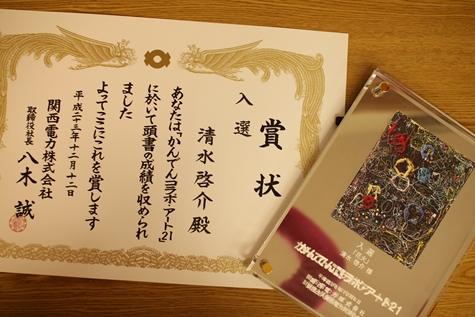 賞状
入選
清水啓介殿
あなたは「かんでんコラボ・アート21」
に於いて頭書の成績を収められ
ました
よってここにこれを賞します
平成二十三年十二月十二日
関西電力株式会社
取締役社長 八木誠
入選
清水 啓介 様
かんでんコラボ・アート21